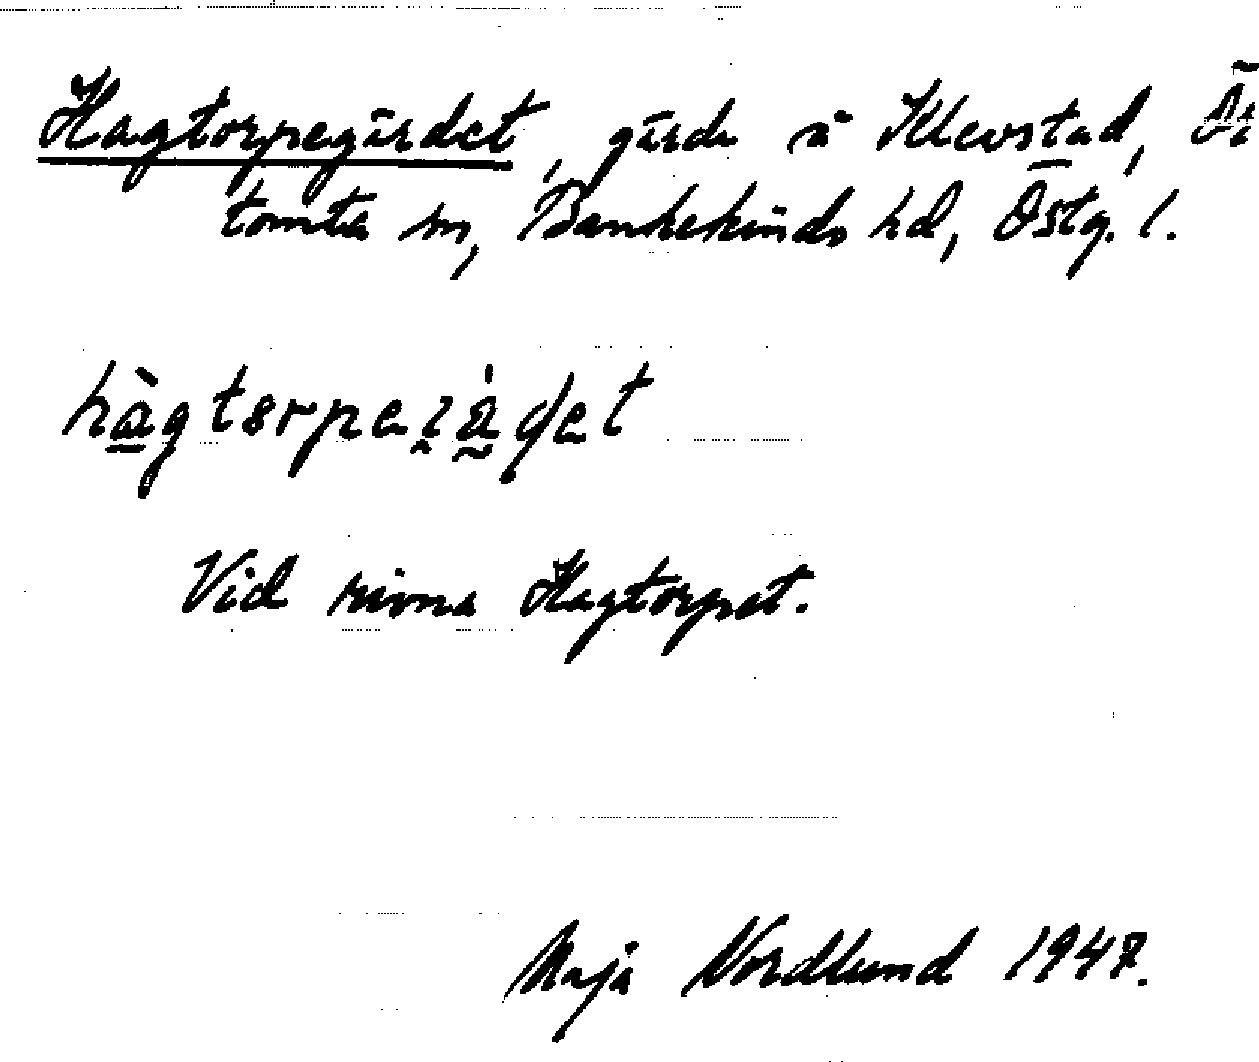 Hagtorpegärdet, gärde å Klevstad, Ö
tomta sn, Bankekinds hd, Östg. l.
Vid rivna Hagtorpet.
Maja Nordlund 1947.